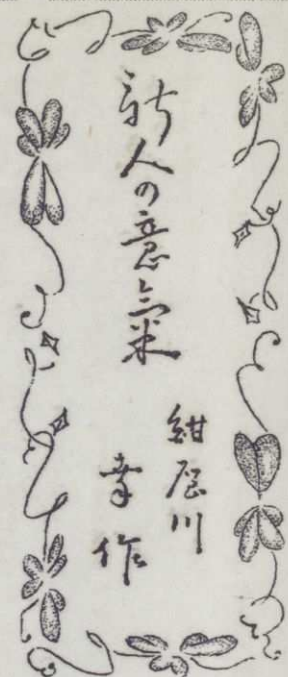 新人の意氣
紺屋川
幸作